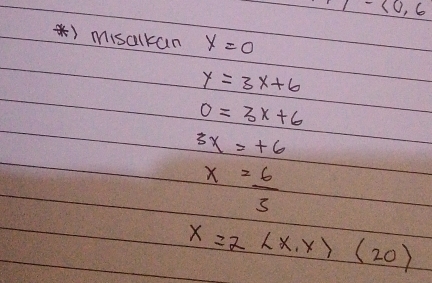 (0,6
*) misalkan y = 0
y = 3x+6
0 = 3x+6
3x = +6
x = 6/3
x = 2 (x,y) (20)